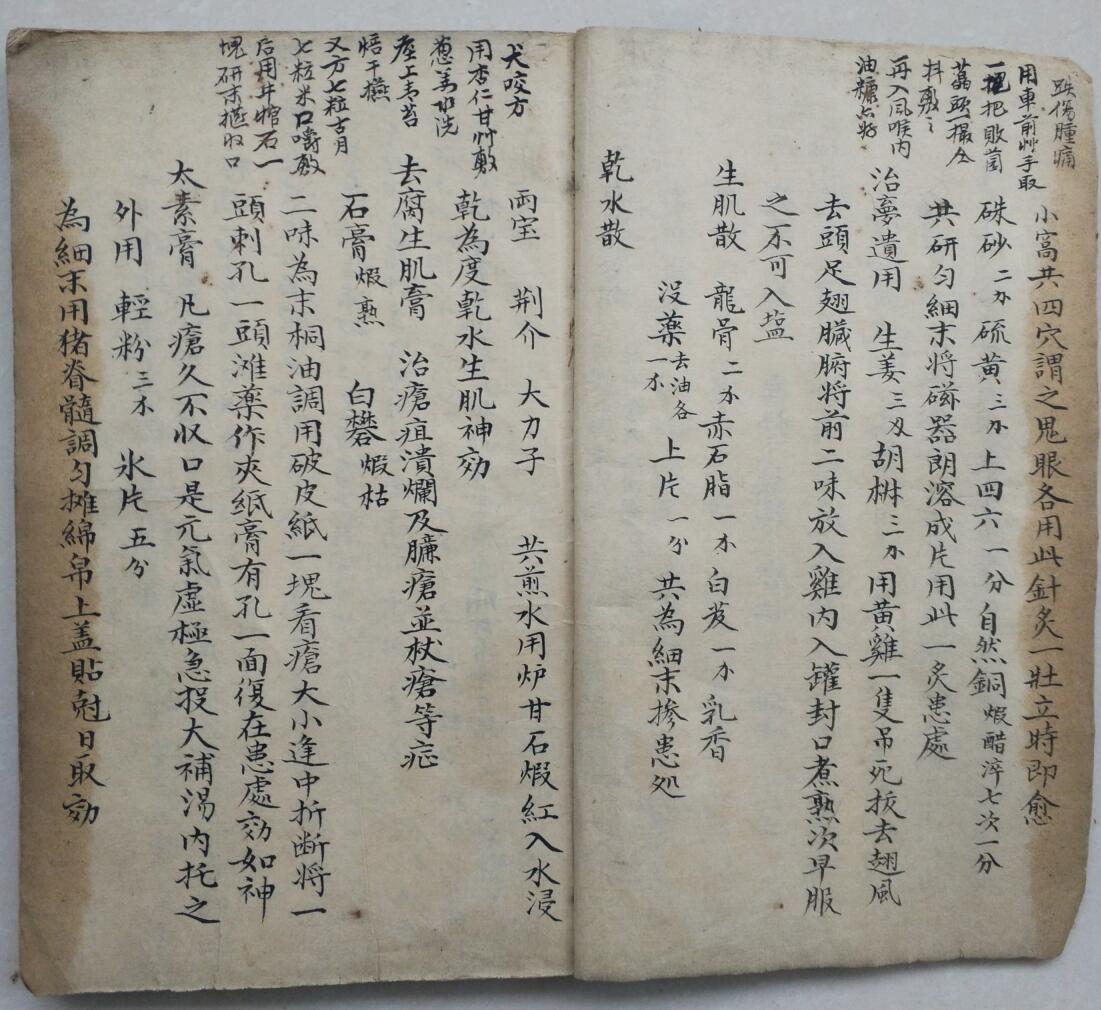 跌傷腫痛
用車前艸手取
一把把敗菌
蒜頭一撮仝
抖敷之
再入風喉內
油糠占好
小窩共四穴謂之鬼眼各用此針炙一壯立時即愈
硃砂二刄 硫黄三刄 上四六一分 自然銅煅醋淬七次一分
共研匀細末將磁器朗溶成片用此一炙患處
治夢遺用 生姜三刄 胡椒三刄 用黄雞一隻吊死拔去翅風
去頭足翅臟腑將前二味放入雞內入罐封口煮熟次早服
之不可入塩
生肌散 龍骨二刄 赤石脂一刄 白芨一刄 乳香
没薬去油各一刄 上片一分 共為細末摻患処
乾水散
犬咬方
用杏仁甘艸敷
葱姜水洗
座上青苔
焙干搽
又方七粒古月
七粒米口嚼敷
后用井棺石一
塊研末搽收口
両宝 荆介 大力子 共煎水用炉甘石煅紅入水浸
乾為度乾水生肌神効
去腐生肌膏 治瘡疽潰爛及臁瘡並杖瘡等症
石膏煅熟 白礬煅枯
二味為末桐油調用破皮紙一塊看瘡大小逢中折断將一
頭刺孔一頭滩薬作夾紙膏有孔一面復在患處効如神
太素膏 凡瘡久不收口是元氣虚極急投大補湯内托之
外用 輕粉三刄 氷片五分
為細末用猪脊髓調匀摊綿帛上盖貼尅日取効